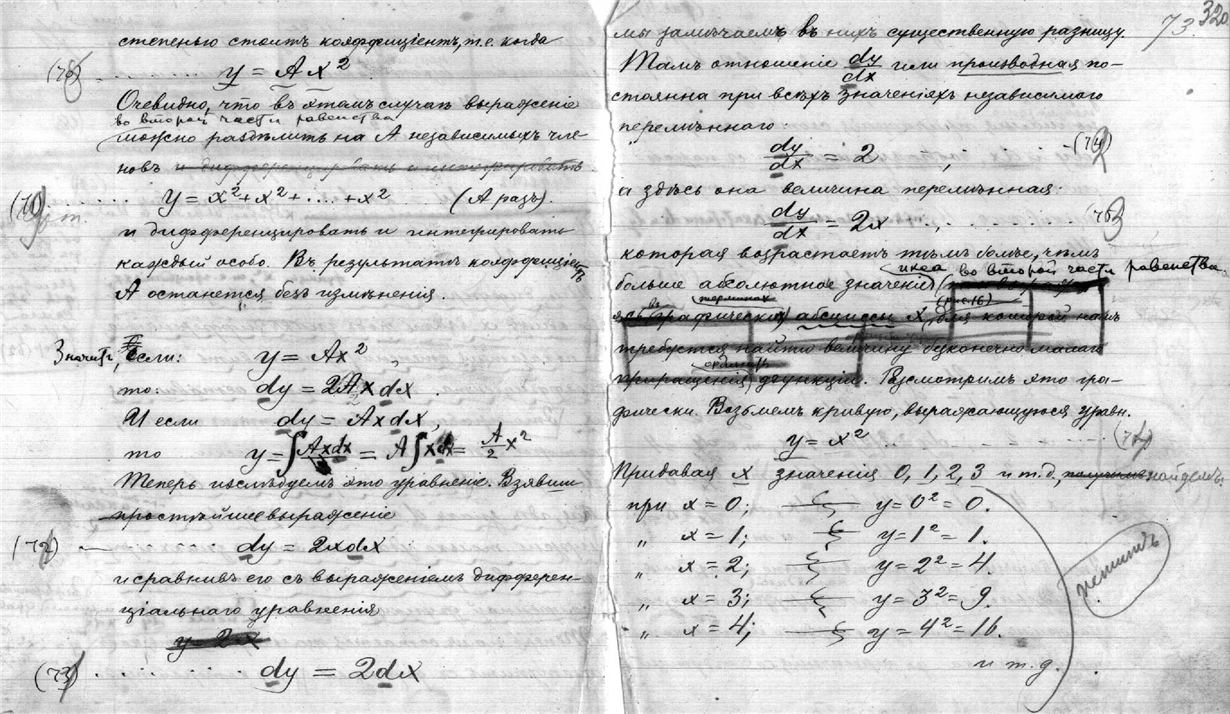 степенью стоитъ коэффицiентъ, т.е. когда
y = Ax²
Очевидно, что въ этомъ случаѣ выраженiе
во второй части равенства
можно раздѣлить на А независимыхъ чле-
новъ и дифференцировать и интегрировать
y = x² + x² + .... + x² (А разъ).
и дифференцировать и интегрировать
каждый особо. Въ результатѣ коэффицiентъ
А останется безъ измѣненiя.
Значитъ, если: y = Ax²
то: dy = 2Axdx
И если dy = Axdx,
то y = ∫Axdx = A∫xdx = A/2 x²
Теперь изслѣдуемъ это уравненiе. Взявши
простѣйшее выраженiе
(72) dy = 2xdx
и сравнивъ его съ выраженiемъ дифферен-
цiальнаго уравненiя
y 2x
(73) ........ dy = 2dx
73. 320
мы замѣчаемъ въ нихъ существенную разницу.
Тамъ отношенiе dy/dx или производная по-
стоянна при всѣхъ значенiяхъ независимаго
перемѣннаго
dy/dx = 2 (74)
а здѣсь она величина перемѣнная:
dy/dx = 2x
которая возрастаетъ тѣмъ болѣе, чѣмъ
икса во второй части равенства.
больше абсолютное значенiе
въ терминах (рис. 16)
графически абсциссы x, для которой намъ
требуется найти величину безконечно малаго
приращенiя функцiи. Разсмотримъ это гра-
фически. Возьмемъ кривую, выражающуюся уравн.
y = x²
Придавая x значенiя 0, 1, 2, 3 и т.д., найдемъ:
при x = 0; y = 0² = 0.
„ x = 1; y = 1² = 1.
„ x = 2; y = 2² = 4.
„ x = 3; y = 3² = 9.
„ x = 4; y = 4² = 16.
и т.д.